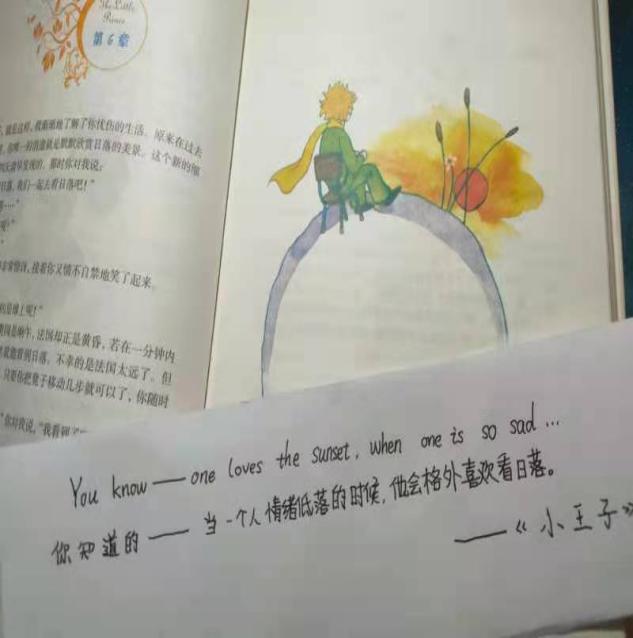 The Little
Prince
第6章
就是这样,慢慢地了解了你忧伤的生活。原来在过去
唯一的消遣就是默默欣赏日落的美景。这个新的细
天清早发现的。那时你对我说:
日落。我们一起去看日落吧!"
……"
呢?"
非常惊讶,接着你又情不自禁地笑了起来。
是晌午,法国却正是黄昏,若在一分钟内
就能看到日落。不幸的是法国太远了。但
只要你把凳子移动几步就可以了,你随时
"你对我说,"我看到了
You know——one loves the sunset, when one is so sad...
你知道的——当一个人情绪低落的时候,他会格外喜欢看日落。
——《小王子》